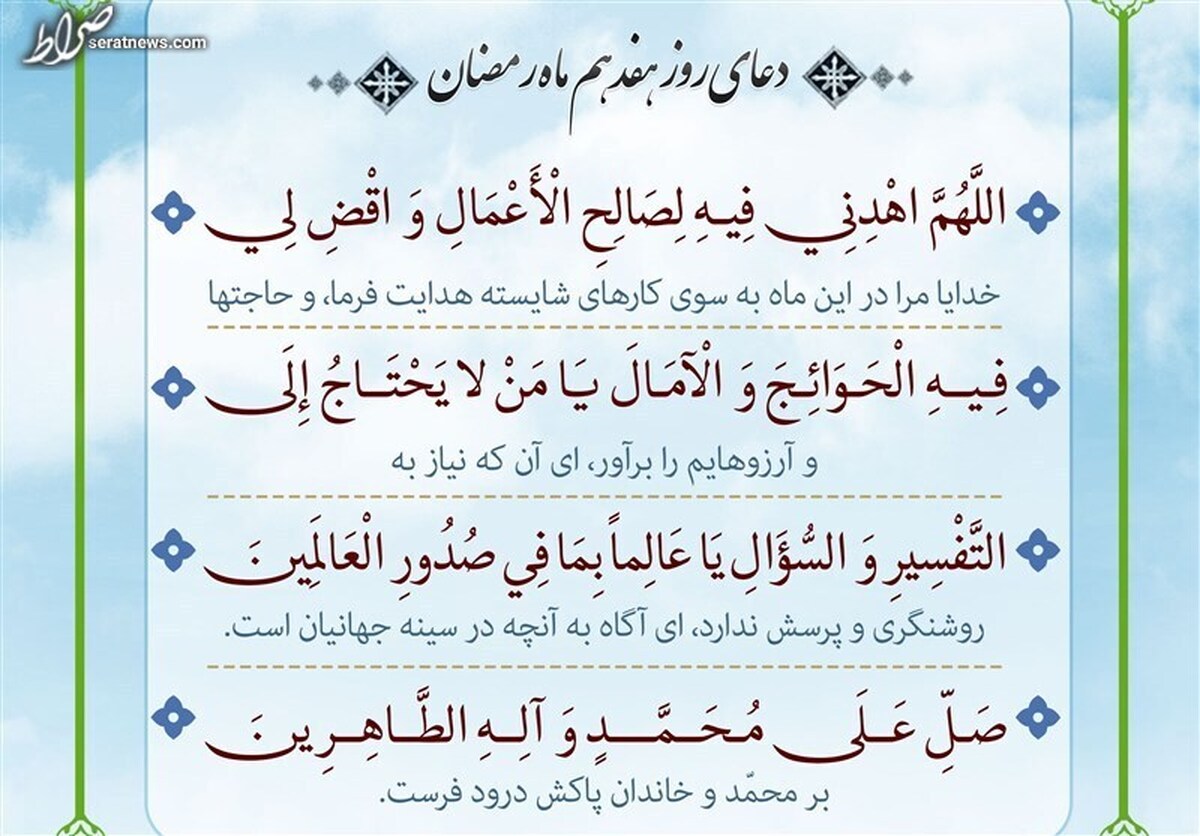 صراط
seratnews.com
دعای روز هفدهم ماه رمضان
اللَّهُمَّ اهْدِنِي فِيهِ لِصَالِحِ الْأَعْمَالِ وَ اقْضِ لِي
خدایا مرا در این ماه به سوی کارهای شایسته هدایت فرما، و حاجتها
فِيهِ الْحَوَائِجَ وَ الْآمَالَ يَا مَنْ لا يَحْتَاجُ إِلَى
و آرزوهایم را برآور، ای آن که نیاز به
التَّفْسِيرِ وَ السُّؤَالِ يَا عَالِماً بِمَا فِي صُدُورِ الْعَالَمِينَ
روشنگری و پرسش ندارد، ای آگاه به آنچه در سینه جهانیان است.
صَلِّ عَلَى مُحَمَّدٍ وَ آلِهِ الطَّاهِرِينَ
بر محمّد و خاندان پاکش درود فرست.